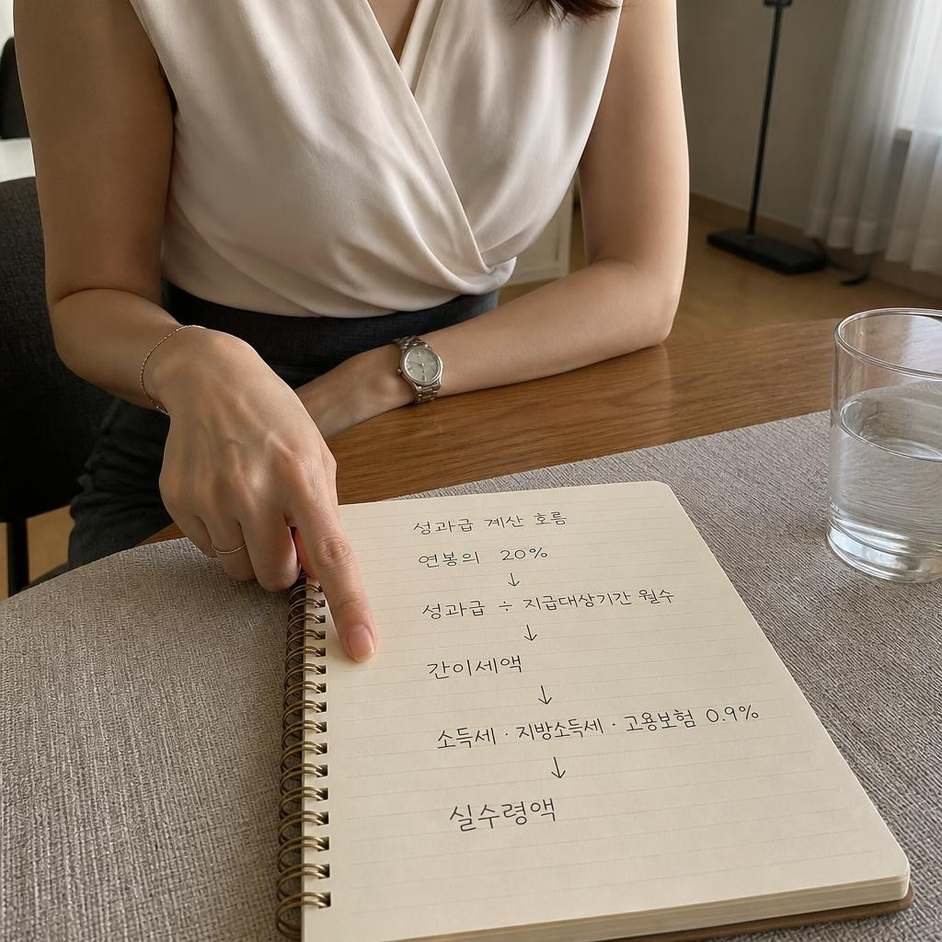 성과급 계산 흐름
연봉의 20%
↓
성과급 ÷ 지급대상기간 월수
↓
간이세액
↓
소득세 · 지방소득세 · 고용보험 0.9%
↓
실수령액